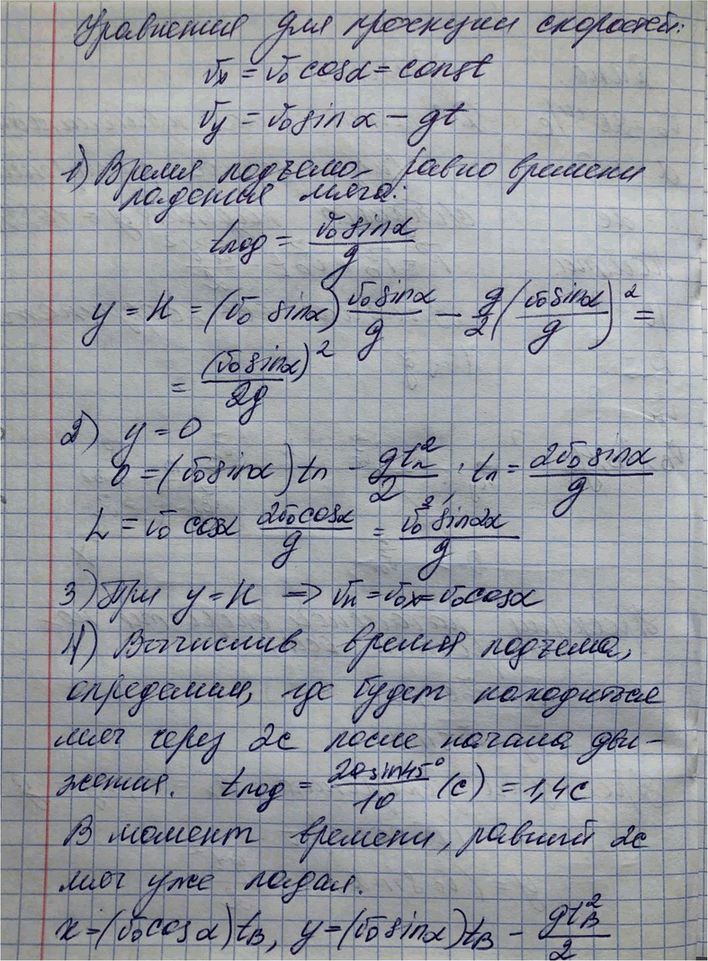 Уравнения для проекции скоростей:
υx = υ0 cosα = const
υy = υ0 sinα − gt
1) Время подъема равно времени
падения мяча:
tпод = υ0 sinα / g
y = H = (υ0 sinα) υ0 sinα / g − g/2 (υ0 sinα / g)² =
= (υ0 sinα)² / 2g
2) y = 0
0 = (υ0 sinα) tп − gtп² / 2 ; tп = 2υ0 sinα / g
L = υ0 cosα 2υ0 cosα / g = υ0² sin2α / g
3) При y = H => υн = υ0x = υ0 cosα
4) Вычислив время подъема,
определим, где будет находиться
мяч через 2с после начала дви-
жения. tпод = 20 sin45° / 10 (с) = 1,4с
В момент времени, равный 2с
мяч уже падал.
x = (υ0 cosα) tв, y = (υ0 sinα) tв − gtв² / 2